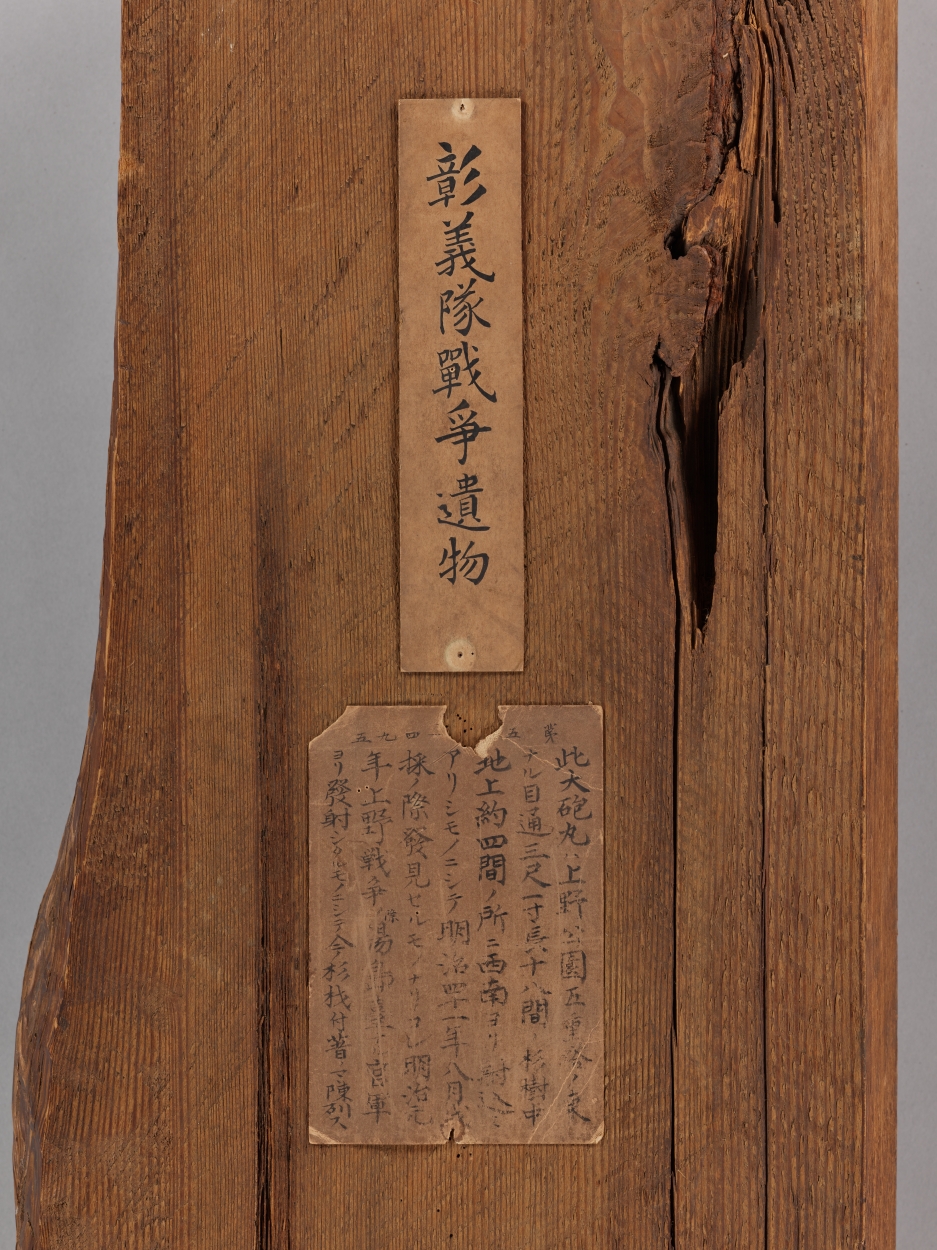 彰義隊戰爭遺物
第 五 四九五
此大砲丸ハ上野公園五重塔ノ東
ナル目通三尺一寸長十八間ノ杉樹中
地上約四間ノ所ニ西南ヨリ射込
アリシモノニシテ明治四十一年八月
採ノ際發見セルモノナリ 明治元
年上野戦争ノ際湯島臺 官軍
ヨリ發射シタルモノニシテ今杉材付著ノマヽ陳列ス